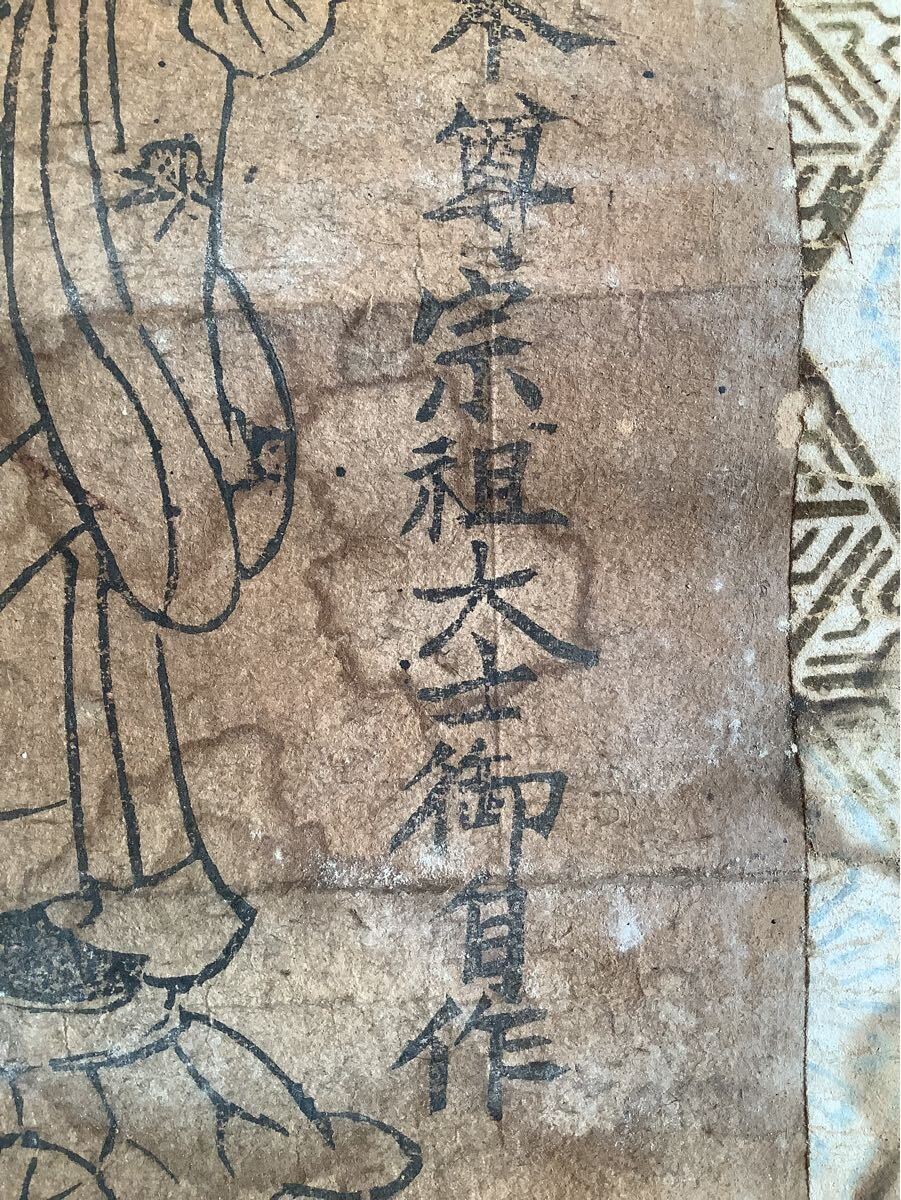 本尊宗祖大士御自作